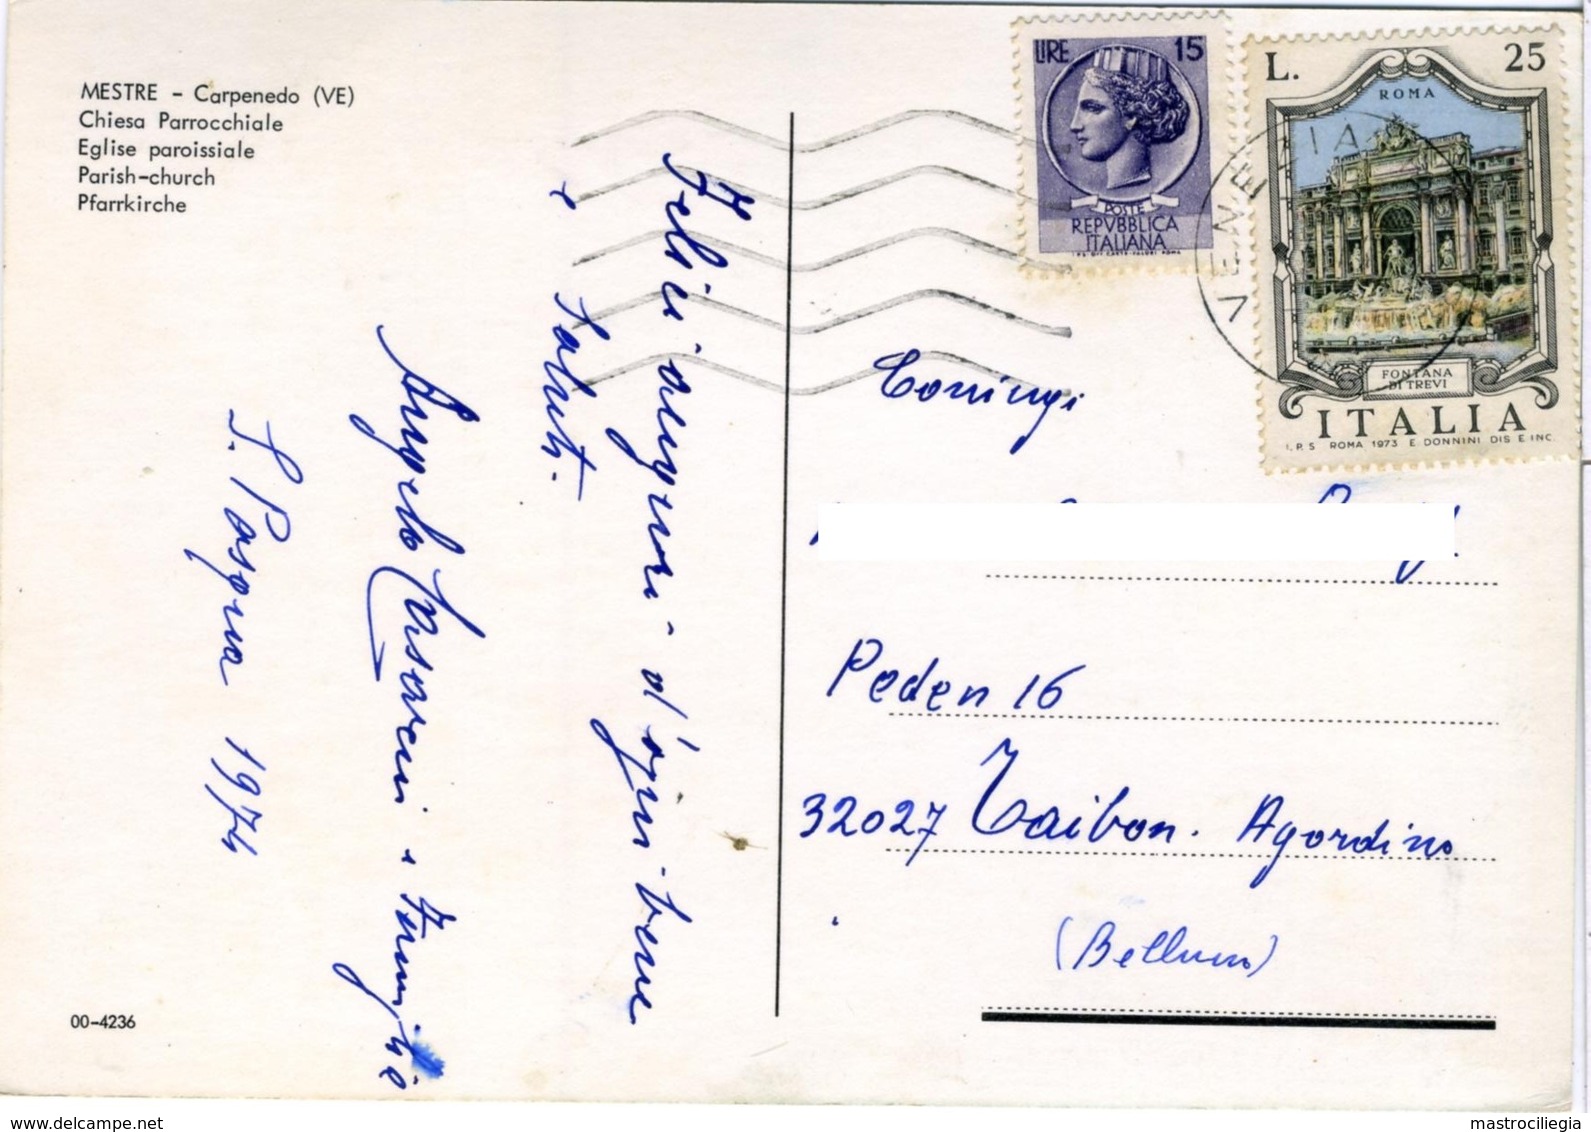 MESTRE - Carpenedo (VE)
Chiesa Parrocchiale
Eglise paroissiale
Parish-church
Pfarrkirche
Felici auguri d'ogni bene
e Saluti.
Angelo Casarin e Famiglia
S. Pasqua 1974
00-4236
LIRE 15
POSTE
REPVBBLICA
ITALIANA
I.P.S. OFF. CARTE-VALORI ROMA
L. 25
ROMA
FONTANA
DI TREVI
ITALIA
I.P.S. ROMA 1973 E. DONNINI DIS E INC.
VENEZIA
Coniugi
Peden 16
32027 Taibon. Agordino
(Belluno)
www.delcampe.net
mastrociliegia